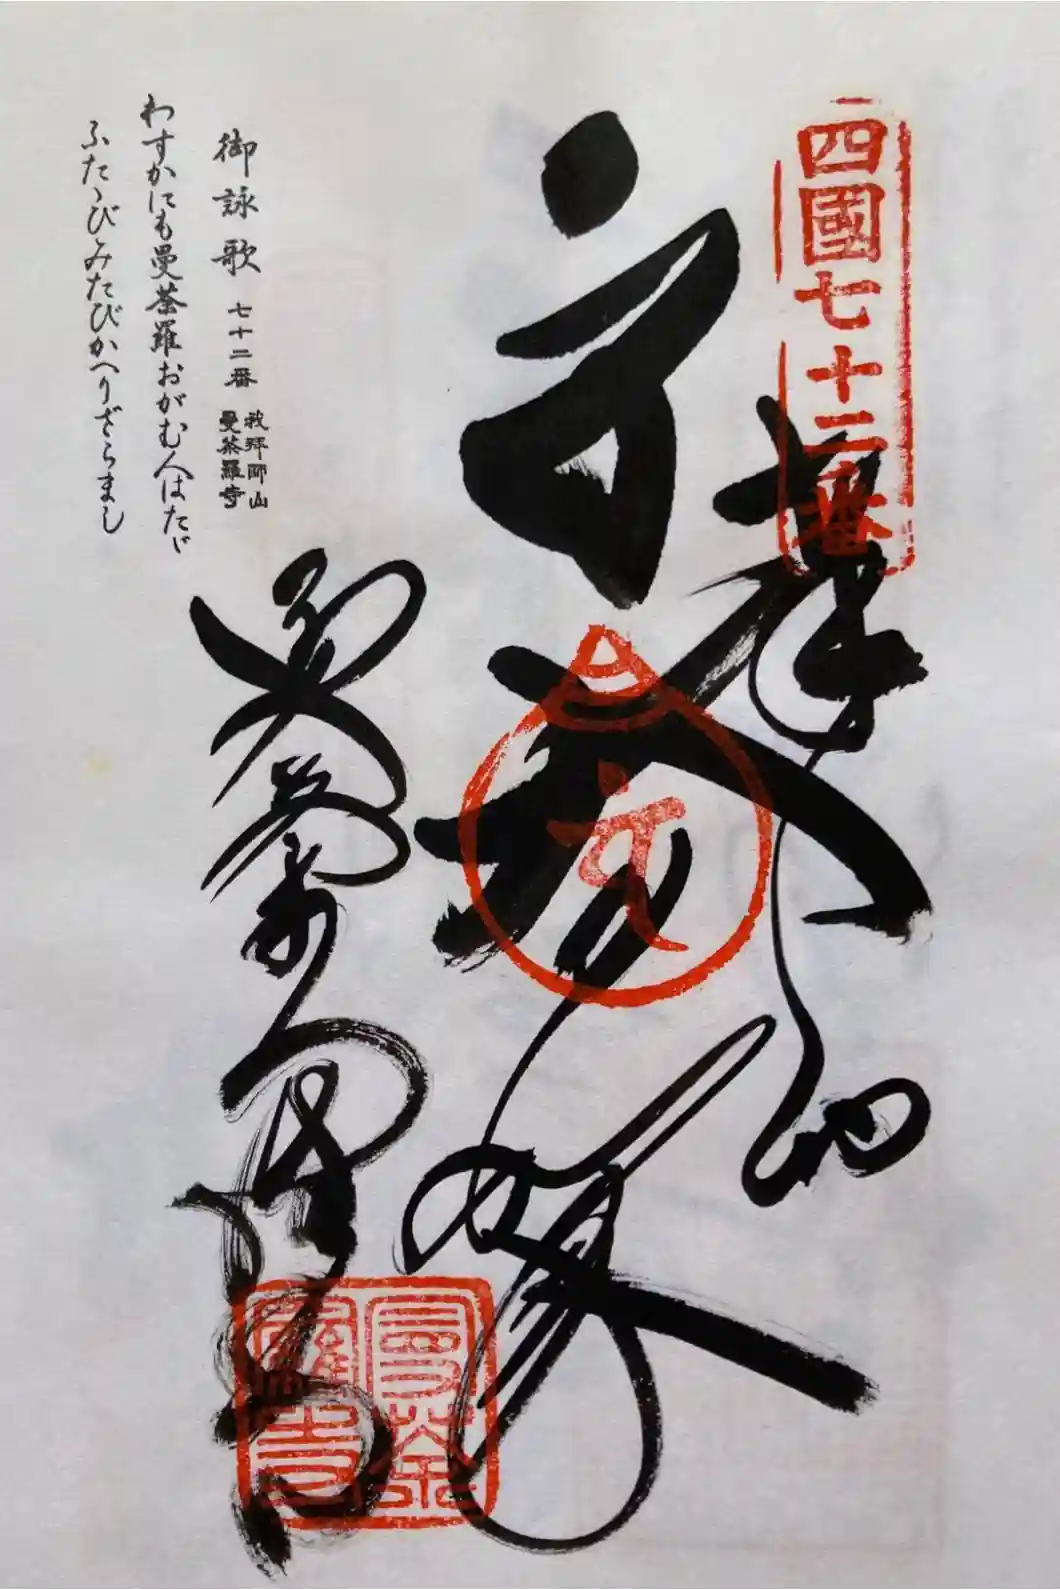 四國七十二番
奉納
大日如来
曼荼羅寺
曼荼羅寺
御詠歌 七十二番 我拝師山 曼荼羅寺
わすかにも曼荼羅おがむ人はたゞ
ふたゝびみたびかへりざらまし